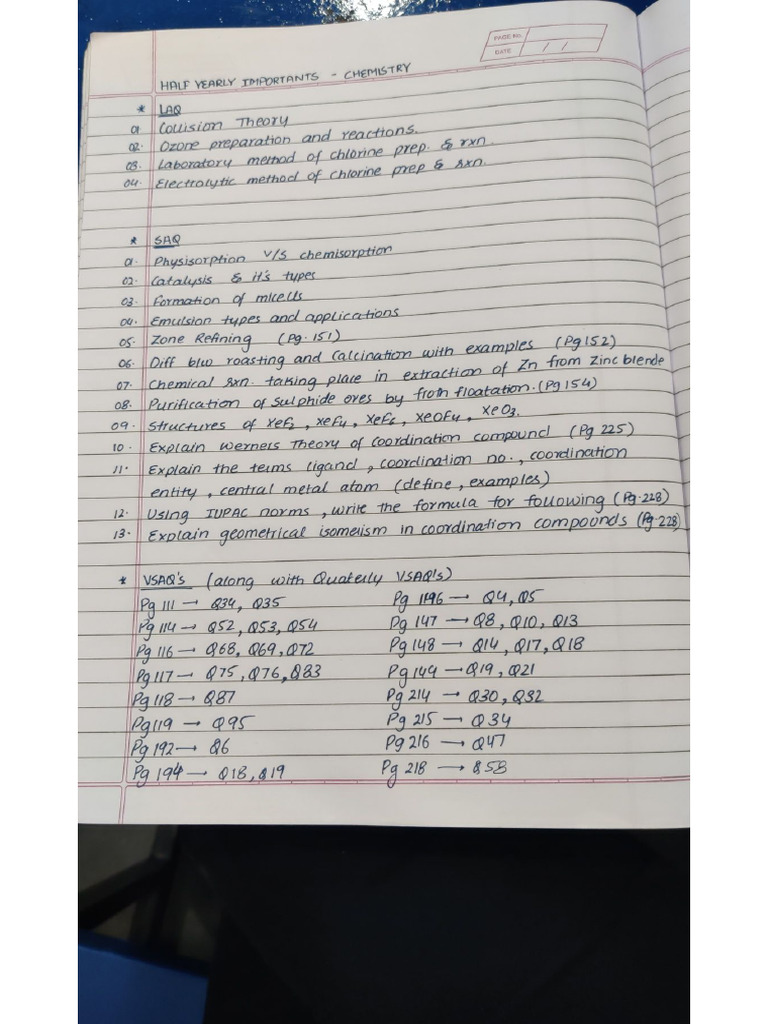 PAGE NO.
DATE / /
HALF YEARLY IMPORTANTS - CHEMISTRY
* LAQ
01 Collision Theory
02. Ozone preparation and reactions.
03. Laboratory method of chlorine prep. & rxn.
04. Electrolytic method of chlorine prep & rxn.
* SAQ
01. Physisorption v/s chemisorption
02. Catalysis & it's types
03. Formation of micells
04. Emulsion types and applications
05. Zone Refining (Pg. 151)
06. Diff b/w roasting and Calcination with examples (Pg 152)
07. Chemical rxn. taking place in extraction of Zn from Zinc blende
08. Purification of Sulphide ores by froth floatation. (Pg 154)
09. Structures of XeF2, XeF4, XeF6, XeOF4, XeO3.
10. Explain Werners Theory of Coordination compound (Pg 225)
11. Explain the terms ligand, coordination no., coordination
entity, central metal atom (define, examples)
12. Using IUPAC norms, write the formula for following (Pg. 228)
13. Explain geometrical isomeism in coordination compounds (Pg. 228)
* VSAQ's (along with Quaterly VSAQ's)
Pg 111 → Q34, Q35 Pg 1196 → Q4, Q5
Pg 114 → Q52, Q53, Q54 Pg 147 → Q8, Q10, Q13
Pg 116 → Q68, Q69, Q72 Pg 148 → Q14, Q17, Q18
Pg 117 → Q75, Q76, Q83 Pg 149 → Q19, Q21
Pg 118 → Q87 Pg 214 → Q30, Q32
Pg 119 → Q95 Pg 215 → Q34
Pg 192 → Q6 Pg 216 → Q47
Pg 194 → Q18, Q19 Pg 218 → Q58